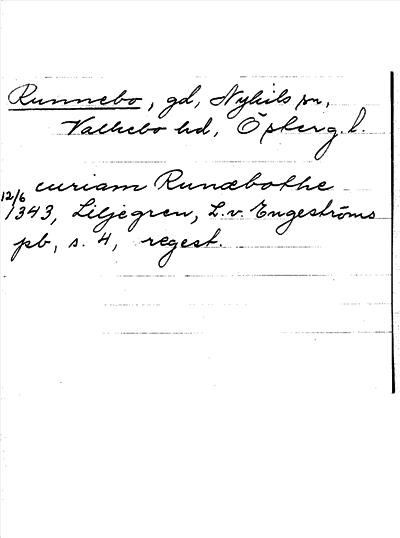 Runnebo, gd, Nykils sn,
Valkebo hd, Österg. l.
curiam Runæbothe
12/6 1343, Liljegren, L. v. Engeströms
pb, s. 4, regest.